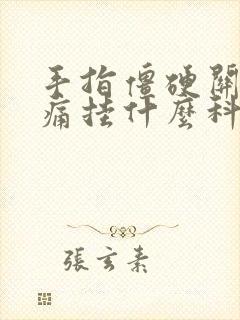 手指僵硬關
痛挂什麼科
張玄素